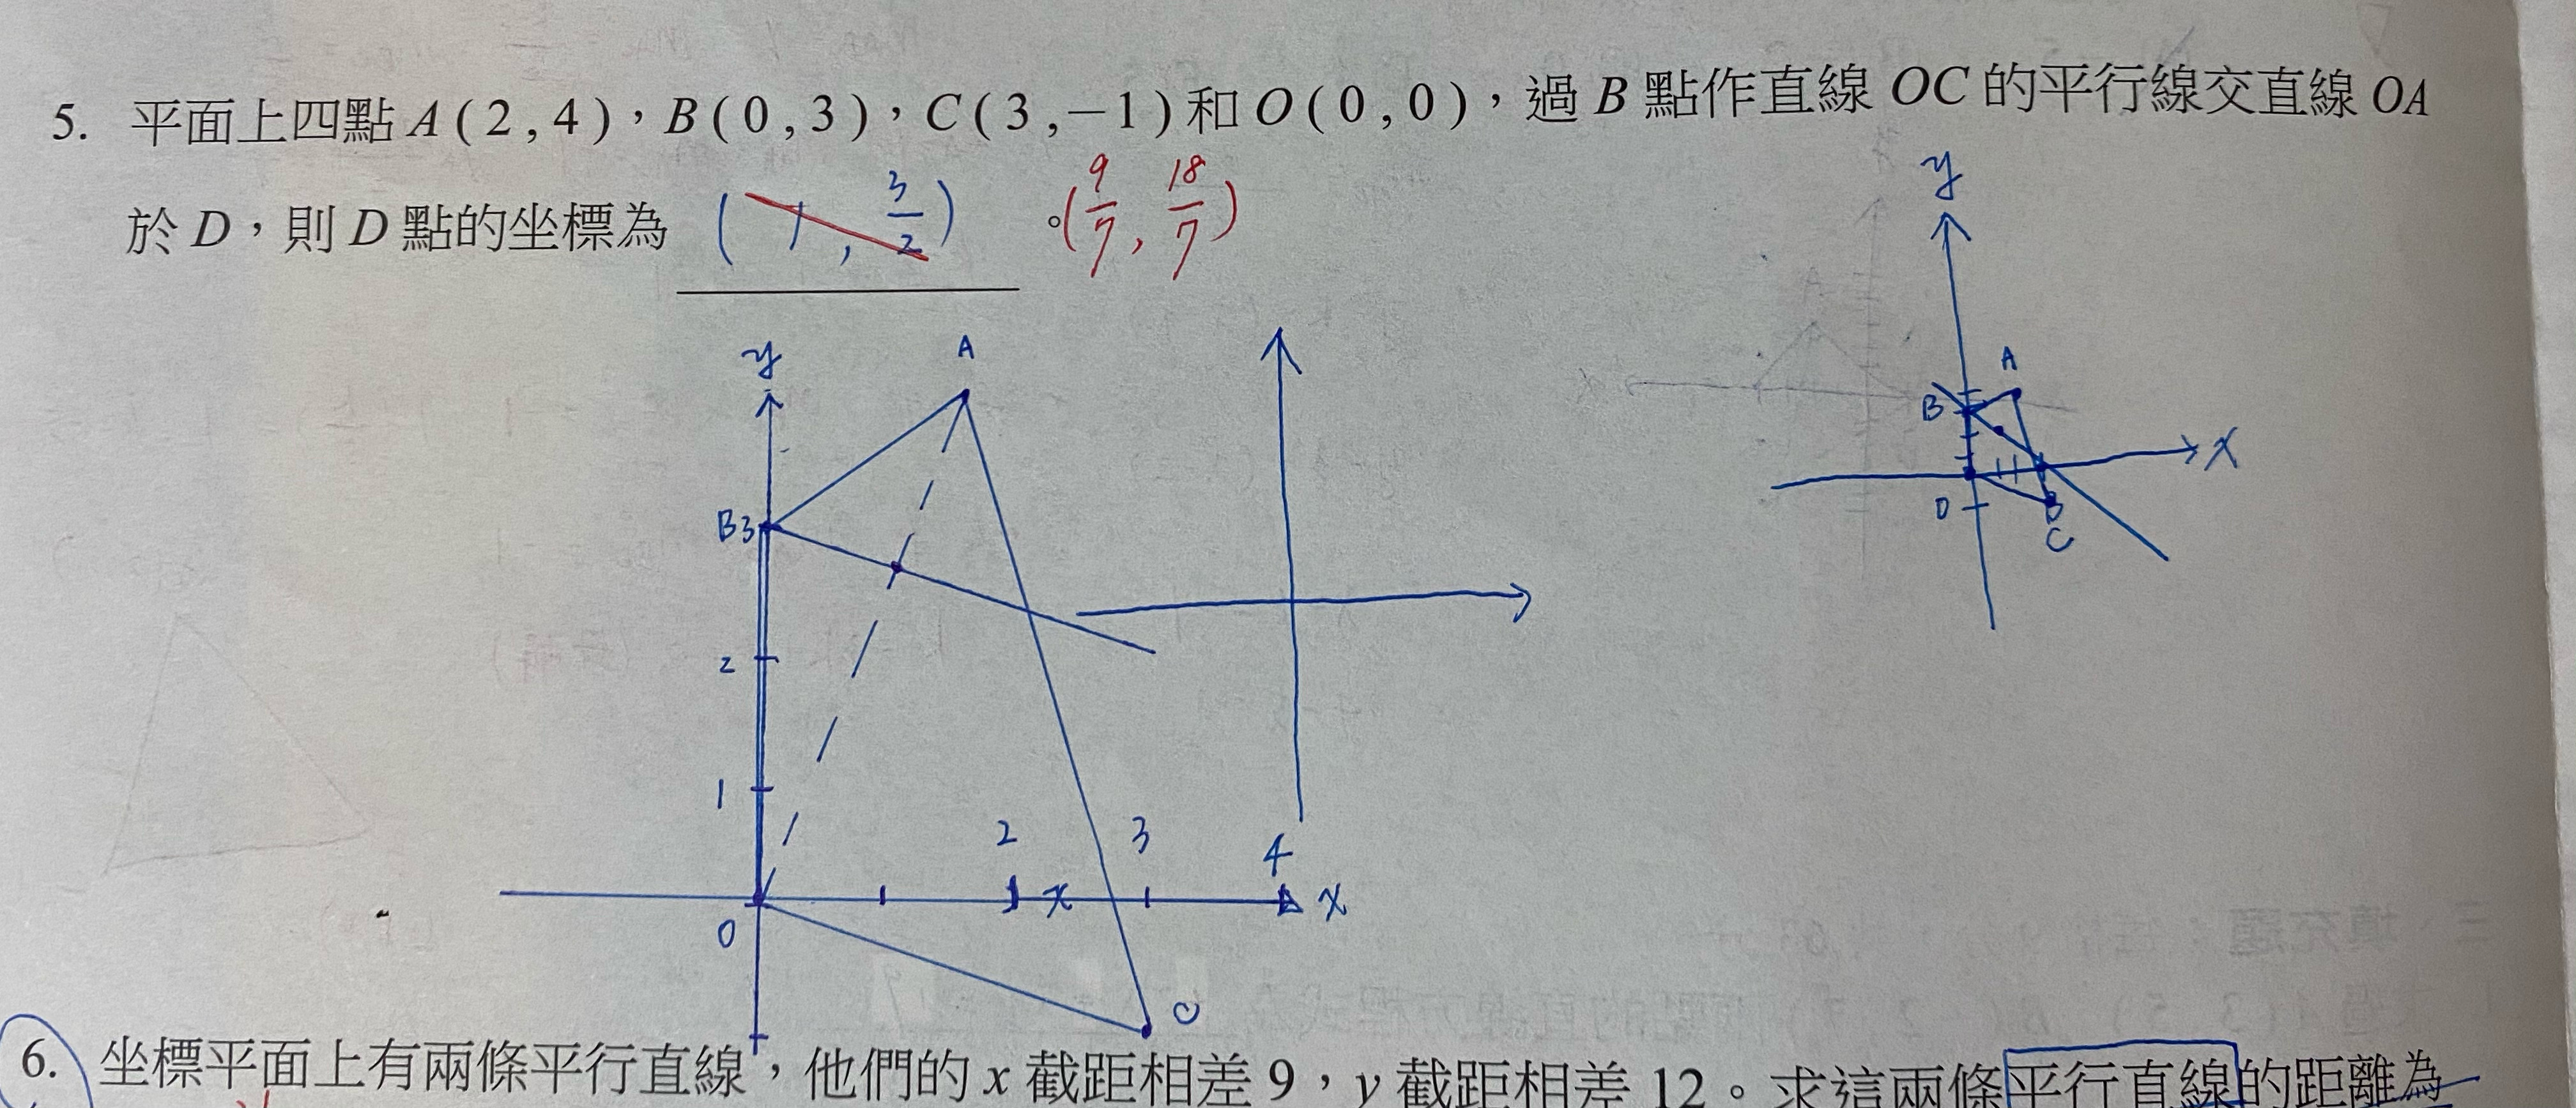 5. 平面上四點 A ( 2 , 4 )，B ( 0 , 3 )，C ( 3 , −1 ) 和 O ( 0 , 0 )，過 B 點作直線 OC 的平行線交直線 OA
於 D，則 D 點的坐標為 ( 1 , 3/2 ) 。( 9/7 , 18/7 )
y
y A
A
B
x
B3
D
C
2
1
2 3 4
x x
O
C
6. 坐標平面上有兩條平行直線，他們的 x 截距相差 9，y 截距相差 12。求這兩條平行直線的距離為